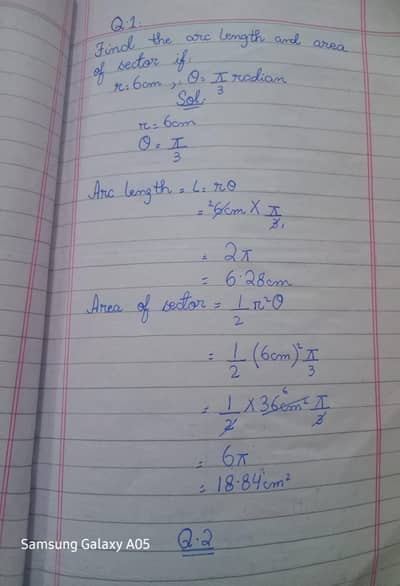 Q.1.
Find the arc length and area
of sector if.
r = 6cm, θ = π/3 radian
Sol.
r = 6cm
θ = π/3
Arc length = L = rθ
= ²6cm X π/3₁
= 2π
= 6.28cm
Area of sector = 1/2 r²θ
= 1/2 (6cm)² π/3
= 1/2 X 36⁶cm² π/3
= 6π
= 18.84cm²
Q.2
Samsung Galaxy A05